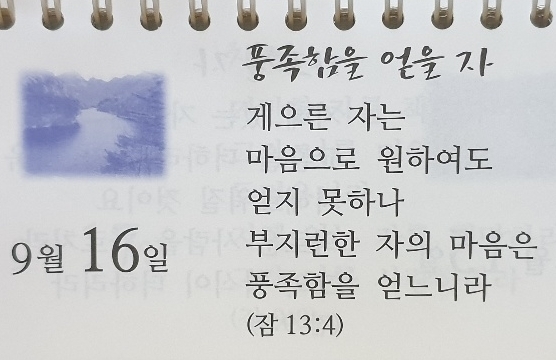 풍족함을 얻을 자
게으른 자는
마음으로 원하여도
얻지 못하나
부지런한 자의 마음은
풍족함을 얻느니라
(잠 13:4)
9월 16일